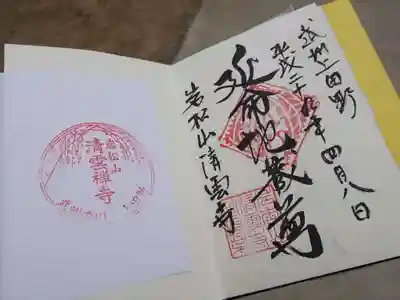 武州上田野
平成二十九年四月八日
延命地蔵尊
岩松山清雲寺
岩松山
清雲禅寺